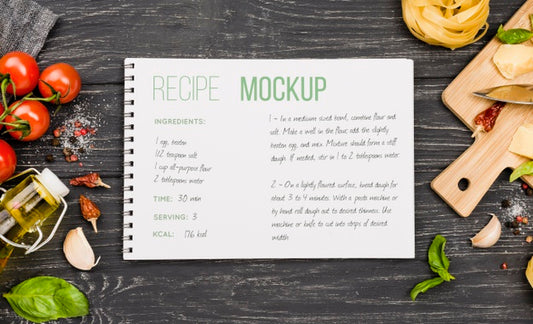 RECIPE MOCKUP
INGREDIENTS:
1 egg, beaten
1/2 teaspoon salt
1 cup all-purpose flour
2 tablespoons water
TIME: 30 min
SERVING: 3
KCAL: 176 kcal
1 - In a medium sized bowl, combine flour and
salt. Make a well in the flour, add the slightly
beaten egg, and mix. Mixture should form a stiff
dough. If needed, stir in 1 to 2 tablespoons water.
2 - On a lightly floured surface, knead dough for
about 3 to 4 minutes. With a pasta machine or
by hand roll dough out to desired thinness. Use
machine or knife to cut into strips of desired
width